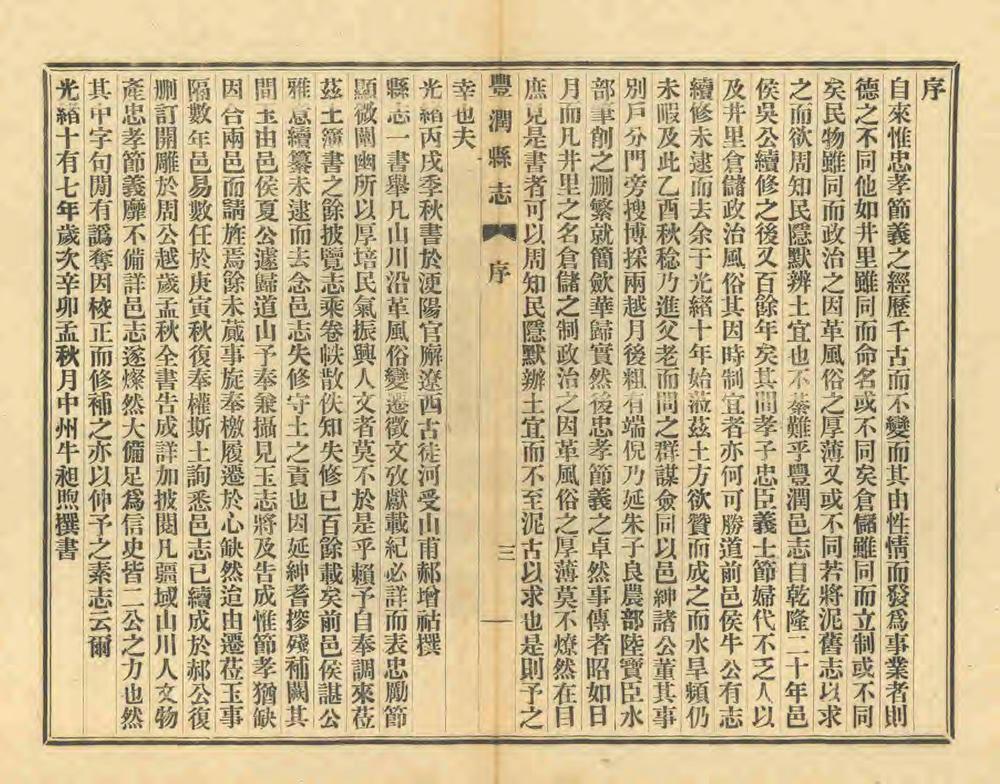 序
自來惟忠孝節義之經歷千古而不變而其由性情而發爲事業者則
德之不同他如井里雖同而命名或不同矣倉儲雖同而立制或不同
矣民物雖同而政治之因革風俗之厚薄又或不同若將泥舊志以求
之而欲周知民隱默辨土宜也不綦難乎豐潤邑志自乾隆二十年邑
侯吳公續修之後又百餘年矣其間孝子忠臣義士節婦代不乏人以
及井里倉儲政治風俗其因時制宜者亦何可勝道前邑侯牛公有志
續修未逮而去余于光緒十年始蒞茲土方欲贊而成之而水旱頻仍
未暇及此乙酉秋稔乃進父老而問之群謀僉同以邑紳諸公董其事
別戶分門旁搜博採兩越月後粗有端倪乃延朱子良農部陸寶臣水
部筆削之删繁就簡斂華歸實然後忠孝節義之卓然事傳者昭如日
月而凡井里之名倉儲之制政治之因革風俗之厚薄莫不燎然在目
庶見是書者可以周知民隱默辨土宜而不至泥古以求也是則予之
豐潤縣志 序 三
幸也夫
光緒丙戌季秋書於浭陽官廨遼西古徒河受山甫郝增祜撰
縣志一書舉凡山川沿革風俗變遷徵文攷獻載紀必詳而表忠勵節
顯微闡幽所以厚培民氣振興人文者莫不於是乎賴予自奉調來莅
茲土簿書之餘披覽志乘卷帙散佚知失修已百餘載矣前邑侯諶公
雅意續纂未逮而去念邑志失修守土之責也因延紳耆摎殘補闕其
間玉由邑侯夏公遽歸道山予奉兼攝見玉志將及告成惟節孝猶缺
因合兩邑而請旌焉餘未蕆事旋奉檄履遷於心缺然迨由遷莅玉事
隔數年邑易數任於庚寅秋復奉權斯土詢悉邑志已續成於郝公復
删訂開雕於周公越歲孟秋全書告成詳加披閱凡疆域山川人文物
產忠孝節義靡不備詳邑志遂燦然大備足爲信史皆二公之力也然
其中字句閒有譌奪因校正而修補之亦以伸予之素志云爾
光緒十有七年歲次辛卯孟秋月中州牛昶煦撰書